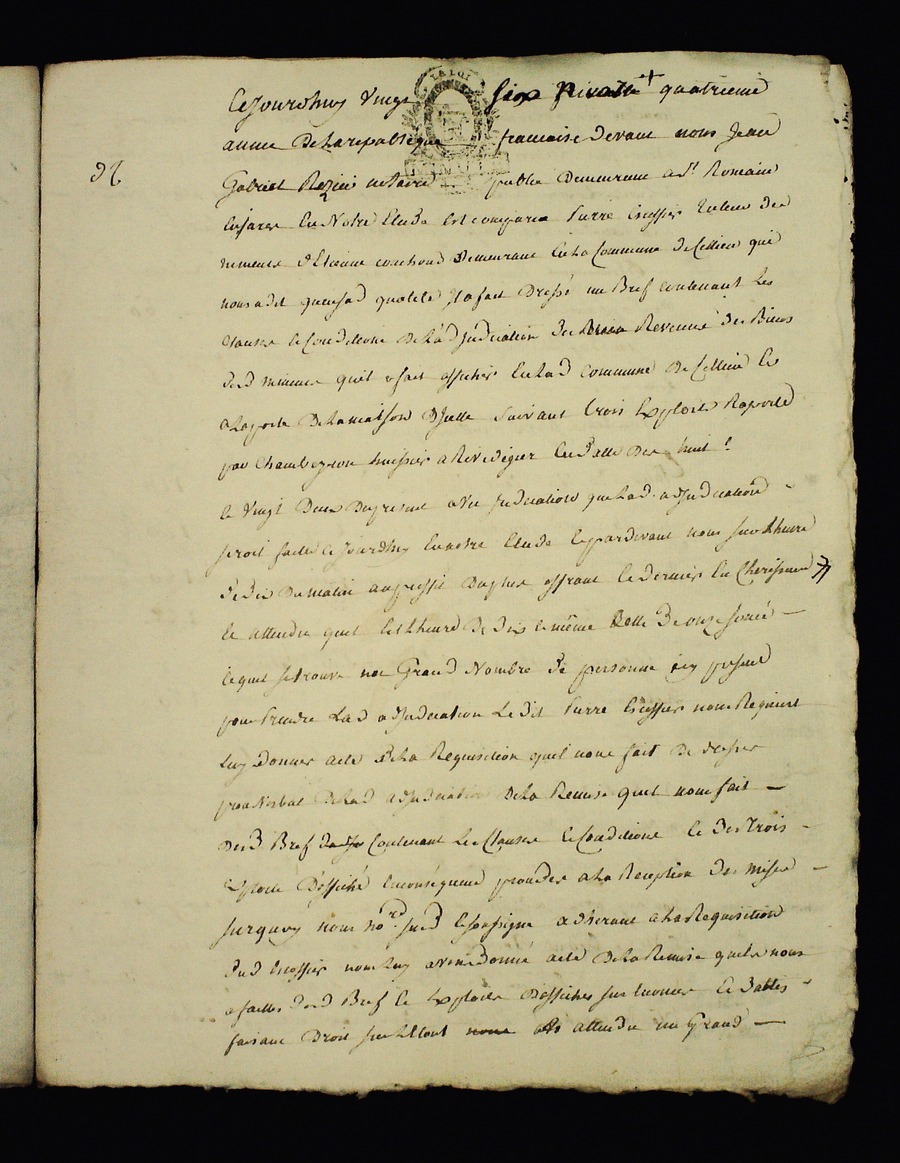 LA LOI
Cejourdhuy vingt six Nivose + quatrieme
annee de la republique francaise devant nous Jean
Gabriel notaire public demeurant a St Romain
En Notre Etude est comparu Pierre tuteur des
mineurs d'Etienne couchoud demeurant en la Commune de Cellieu qui
nous a dit quen sad qualité Il a fait dressé un Bref contenant Les
Clauses et Conditions de L'adjudication des Revenus des Biens
desd mineurs quil a fait afficher En lad Commune de Cellieu et
a La porte de la maison d'icelle suivant trois Exploits Raporté
par Chambeyron huissier a Rivedegier En datte des huit
et vingt Deux du present avec indication que Lad. adjudication
seroit faitte cejourdhuy En notre Etude et pardevant nous sur Lheure
de dix du matin au plus offrant et dernier Encherisseur
et attendu quil est Lheure de dix et même celle de onze sonné
et quil se trouve un Grand Nombre de personne icy present
pour Prendre Lad adjudication Le dit Pierre nous Requiert
Luy donner acte de La Requisition quil nous fait de dresser
proces verbal de Lad adjudication de La Remise quil nous fait
dud Bref Contenant Les Clauses et Conditions et des trois
Exploits d'affiche En consequence proceder a La Reception des mises
surquoy nous no.re sud et soussigné adherant a La Requisition
dud nous Luy avons donné acte de La Remise quil nous
a faittes dud Bref et Exploits d'affiches sur Enoncer et dattes
faisant droit sur Le tout attendu un Grand